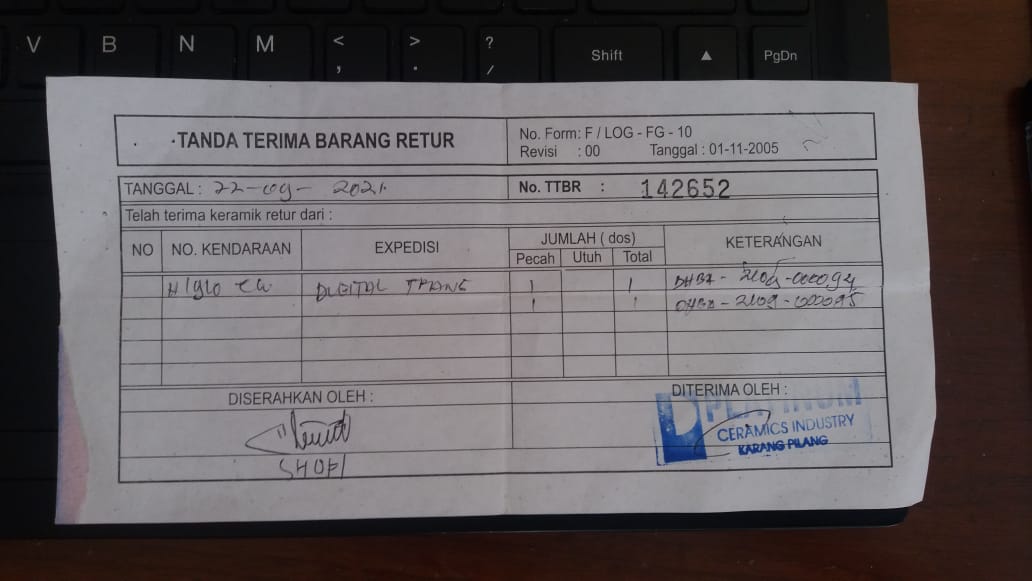 V B N M < , > . ? / Shift ▲ PgDn
TANDA TERIMA BARANG RETUR
No. Form: F / LOG - FG - 10
Revisi : 00 Tanggal : 01-11-2005
TANGGAL : 22-09-2021
No. TTBR : 142652
Telah terima keramik retur dari :
NO NO. KENDARAAN EXPEDISI JUMLAH ( dos) KETERANGAN
Pecah Utuh Total
DIGITAL TRANS 1 1 - 2109-000094
1 1 - 2109-000095
DISERAHKAN OLEH : DITERIMA OLEH :
PLATINUM
CERAMICS INDUSTRY
KARANG PILANG